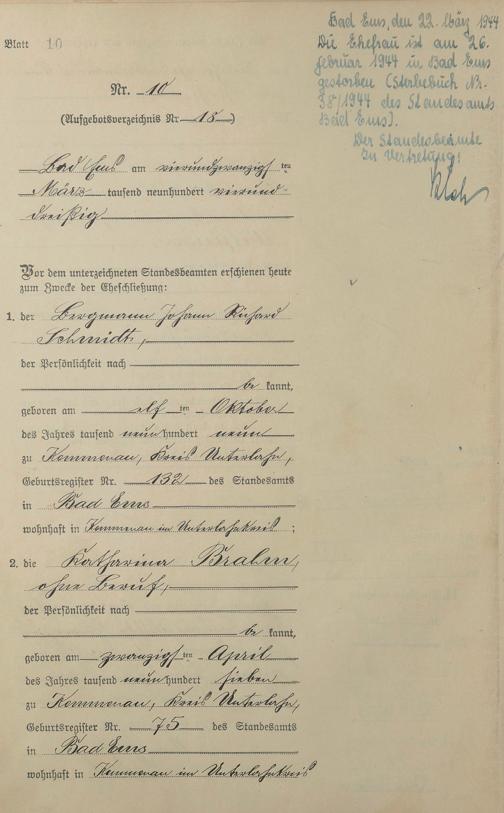 Blatt 10
Bad Ems, den 22. März 1944
Die Ehefrau ist am 26.
februar 1944 in Bad Ems
gestorben (Sterbebuch Nr.
38/1944 des Standesamts
Bad Ems).
Der Standesbeamte
In Vertretung:
Nr. 10
(Aufgebotsverzeichnis Nr. 18)
Bad Ems am vierundzwanzigsten
März tausend neunhundert vierund-
dreißig
Vor dem unterzeichneten Standesbeamten erschienen heute
zum Zwecke der Eheschließung:
1. der Bergmann Johann Richard
Schmidt,
der Persönlichkeit nach
be kannt,
geboren am elf ten Oktober
des Jahres tausend neun hundert neun
zu Kemmenau, Kreis Unterlahn,
Geburtsregister Nr. 132 des Standesamts
in Bad Ems
wohnhaft in Kemmenau im Unterlahnkreis ;
2. die Katharina
ohne Beruf,
der Persönlichkeit nach
be kannt,
geboren am zwanzigs ten April
des Jahres tausend neun hundert sieben
zu Kemmenau, Kreis Unterlahn,
Geburtsregister Nr. 75 des Standesamts
in Bad Ems
wohnhaft in Kemmenau im Unterlahnkreis